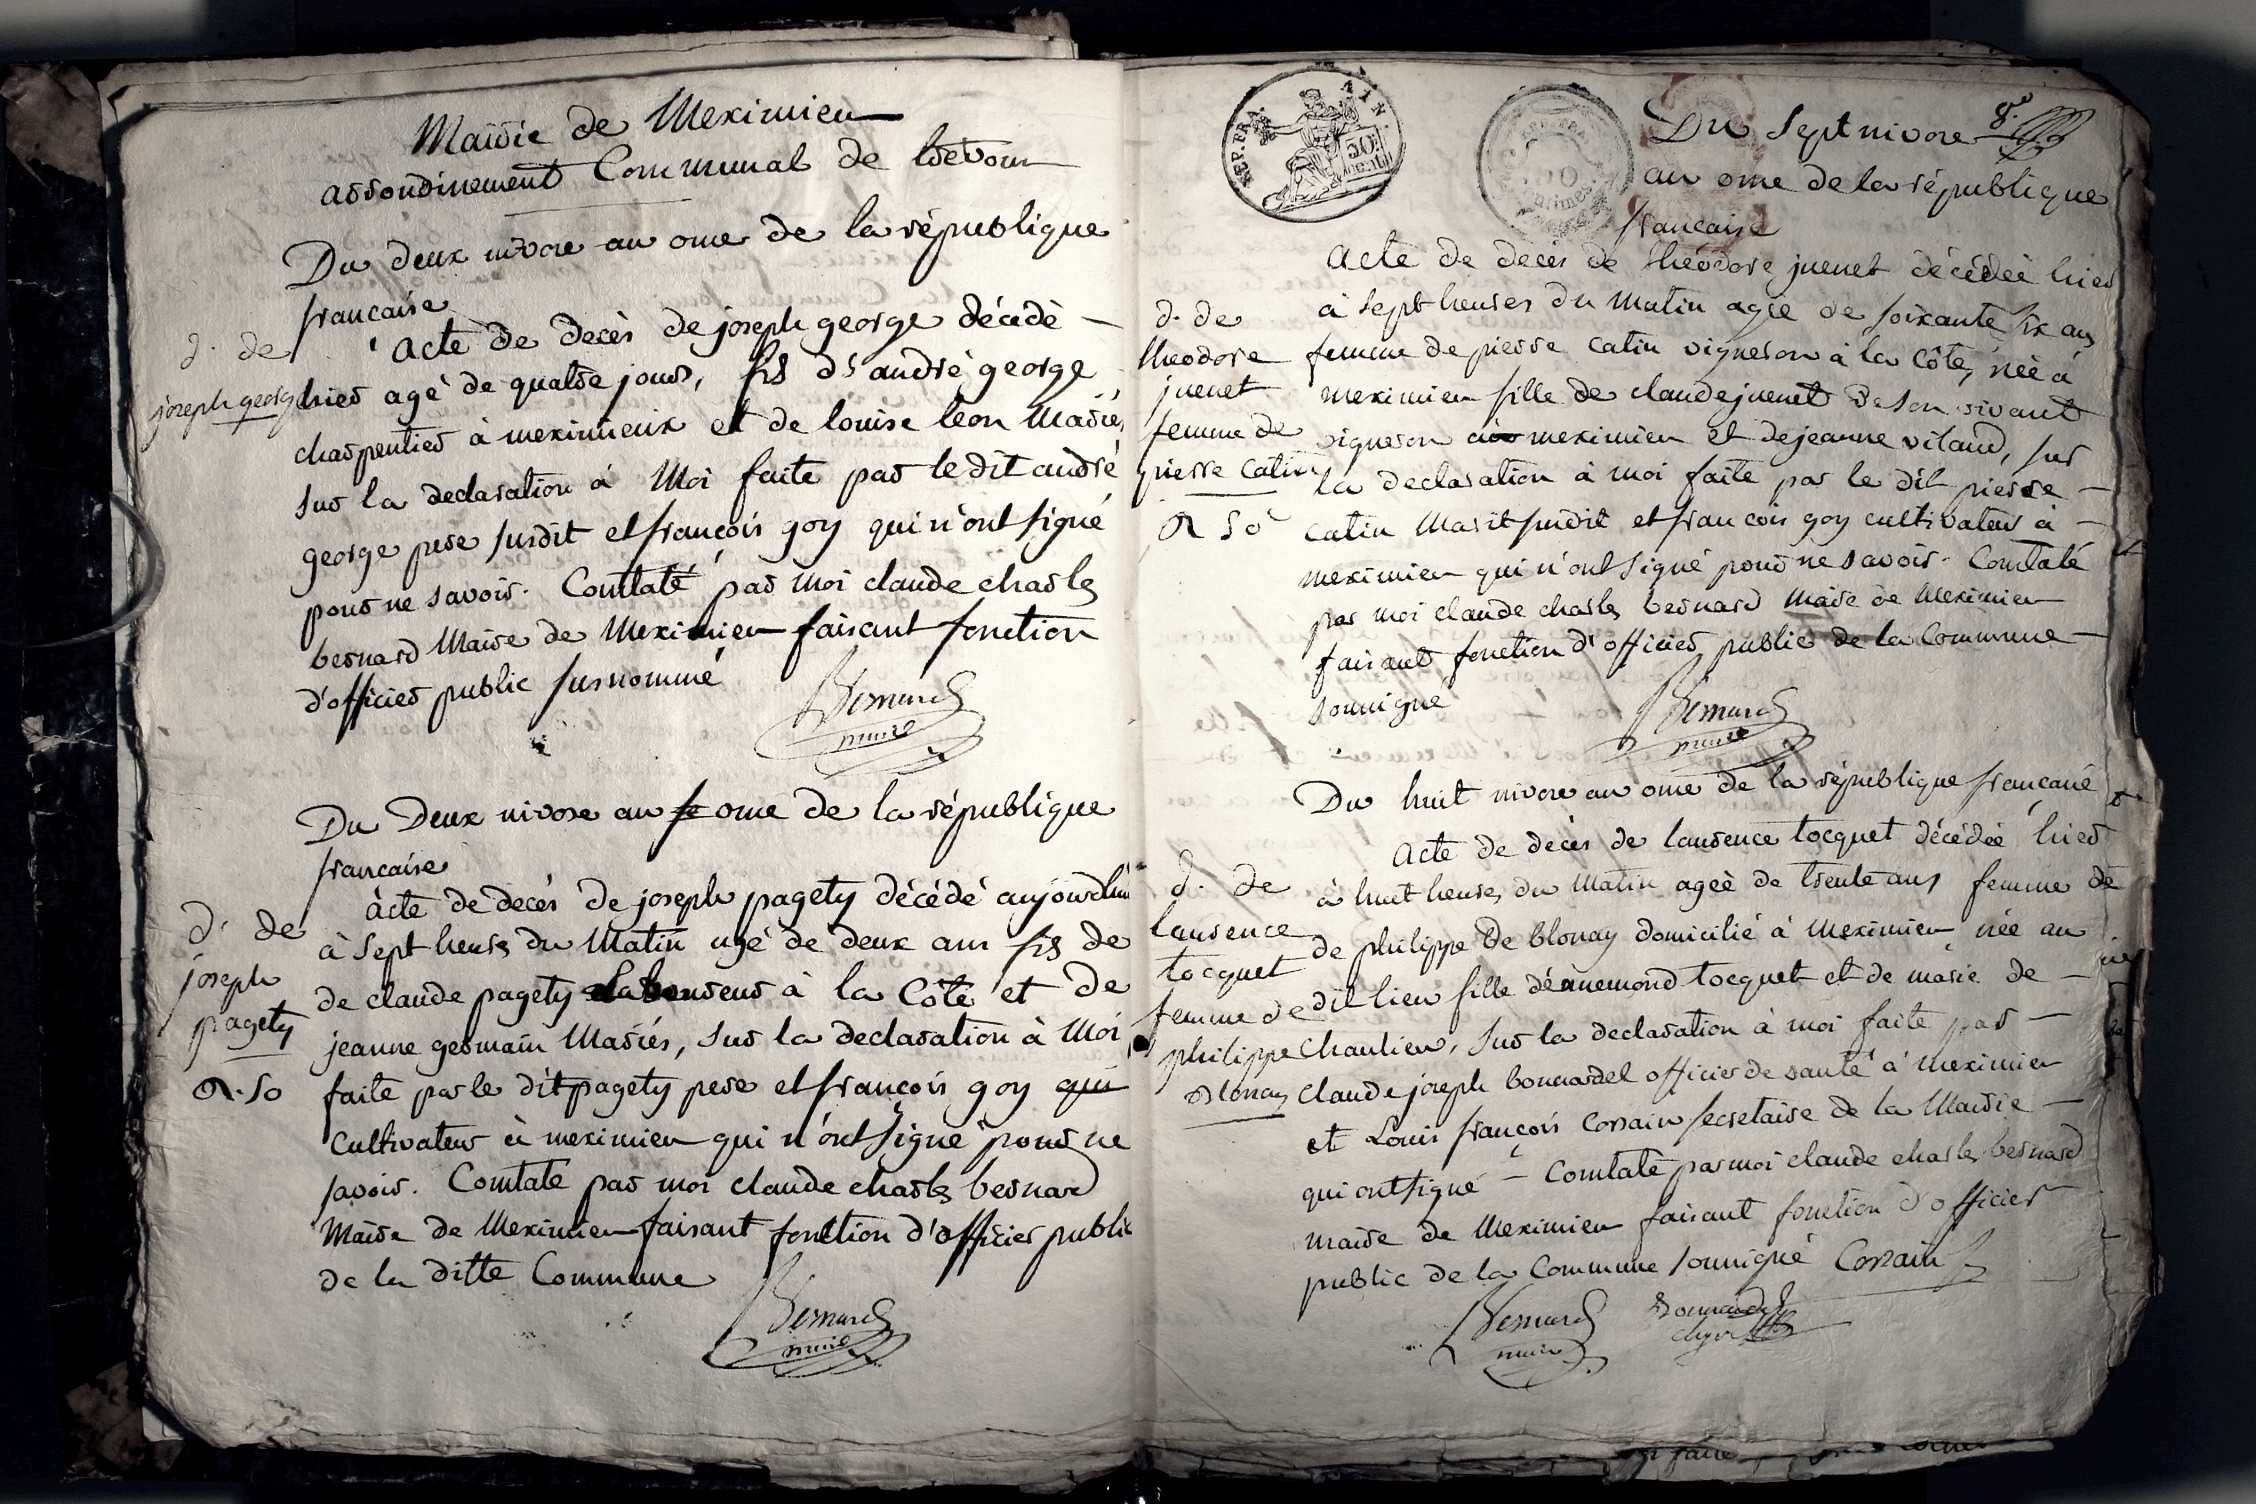 Mairie de Meximieu
arrondinement Communal de trevoux
Du deux nivose an onze de la république
francaise
d. de
joseph george
acte de decès de joseph george décédé
hier agé de quatre jours, fils d'andré george
charpentier à meximieux et de louise leon Mariés
sur la declaration à Moi faite par le dit andré
george pere susdit et françois goy qui n'ont signé
pour ne savoir. Constaté par moi claude charles
bernard Maire de Meximieu faisant fonction
d'officier public susnommé
Bernard
maire
Du Deux nivose an onze de la république
francaise
d. de
joseph
pagety
acte de decés de joseph pagety décédé aujourdhui
à sept heures du Matin agé de deux ans fils de
de claude pagety laboureur à la Côte et de
jeanne germain Mariés, sur la declaration à Moi
faite par le dit pagety pere et françois goy qui
cultivateur à meximieu qui n'ont signé pour ne
savoir. Constaté par moi claude charles bernard
Maire de Meximieu faisant fonction d'officier public
de la ditte Commune
Bernard
maire
REP. FRA. AIN
50
cent.
Du sept nivose
an onze de la république
francaise
d. de
theodore
juenet
femme de
pierre Catin
acte de decès de théodore juenet décédée hier
à sept heures du Matin agée de soixante six ans
femme de pierre catin vigneron à la Côte, née à
meximieu fille de claude juenet de son vivant
vigneron à meximieu et de jeanne vitaud, sur
la declaration à moi faite par le dit pierre
catin Marit susdit et francois goy cultivateur à
meximieu qui n'ont signé pour ne savoir. Constaté
par moi claude charles bernard Maire de Meximieu
faisant fonction d'officier public de la Commune
soussigné
Bernard
maire
Du huit nivose an onze de la république francaise
d. de
laurence
tocquet
femme de
philippe
Blonay
acte de decès de laurence tocquet décédée hier
à huit heures du Matin ageé de trente ans femme de
de philippe de blonay domicilié à Meximieu née au
dit lieu fille d'ānnemond tocquet et de marie de
Chaulieu, sur la declaration à moi faite par
claude joseph bonnardel officier de santé à Meximieu
et Louis françois Corsain secretaire de la Mairie
qui ont signé - Constaté par moi claude charles bernard
maire de Meximieu faisant fonction d'officier
public de la Commune soussigné Corsain
Bernard
maire
Bonnardel